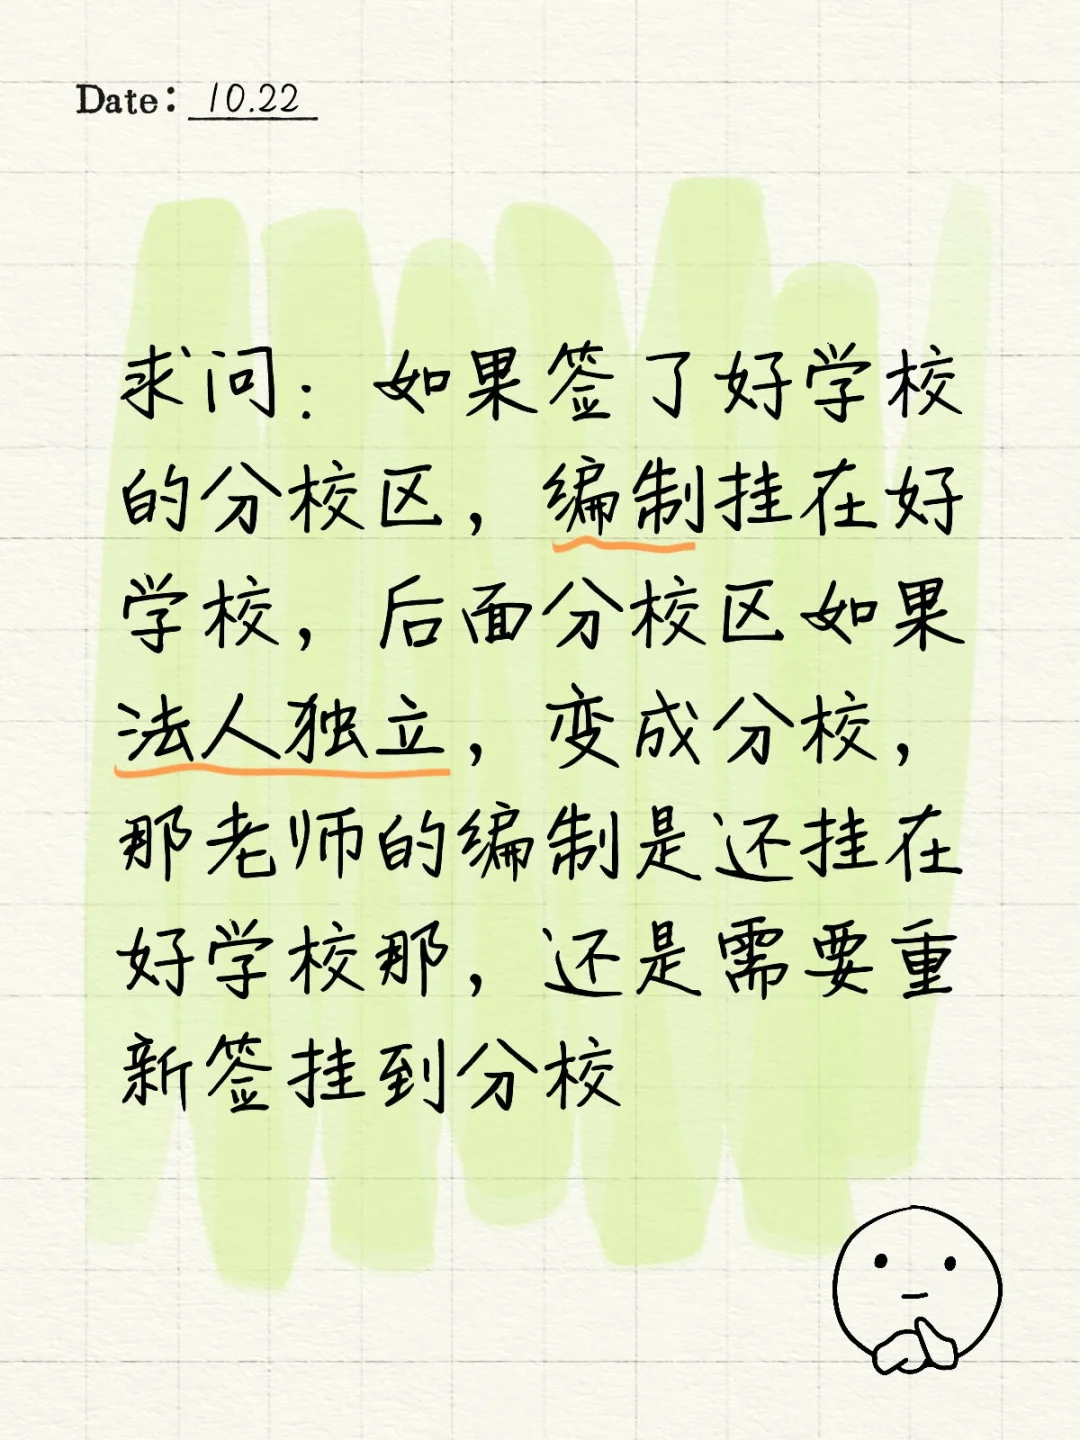 Date: 10.22
求问：如果签了好学校
的分校区，编制挂在好
学校，后面分校区如果
法人独立，变成分校，
那老师的编制是还挂在
好学校那，还是需要重
新签挂到分校